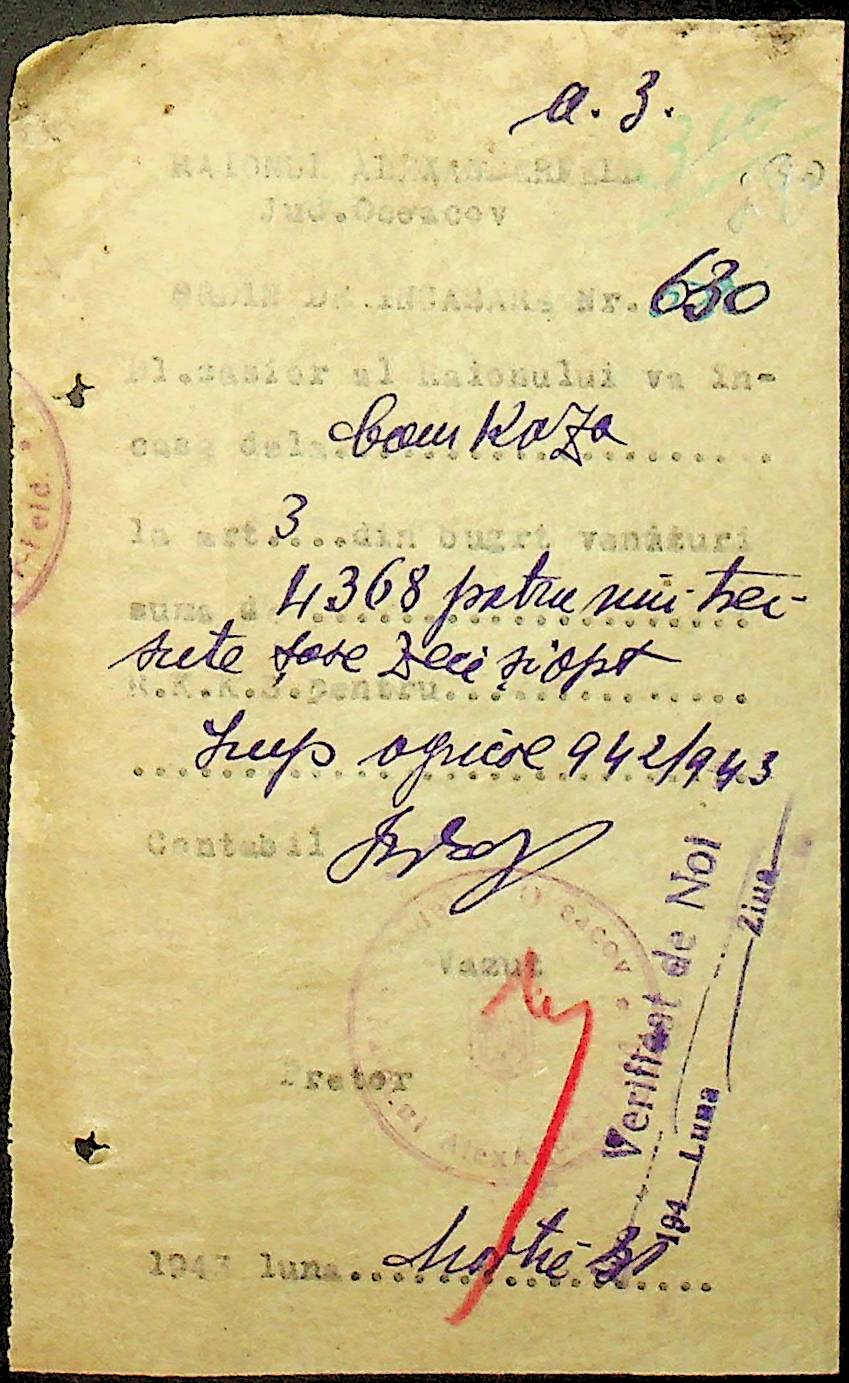 a. 3.
310
RAIONUL ALEXANDERFELD
Jud.Oceacov
ORDIN DE INCASARE Nr. 630
Dl.casier al Raionului va in-
casa dela....................
la art. 3 ...din bugrt venituri
suma d. 4368 patru mii trei-
sute șase zeci și opt
R.K.K.S.pentru...............
Imp agricol 942/943
Contabil
Vazut
Pretor
1943 luna Martie 31
Verificat de Noi
194 Luna Ziua